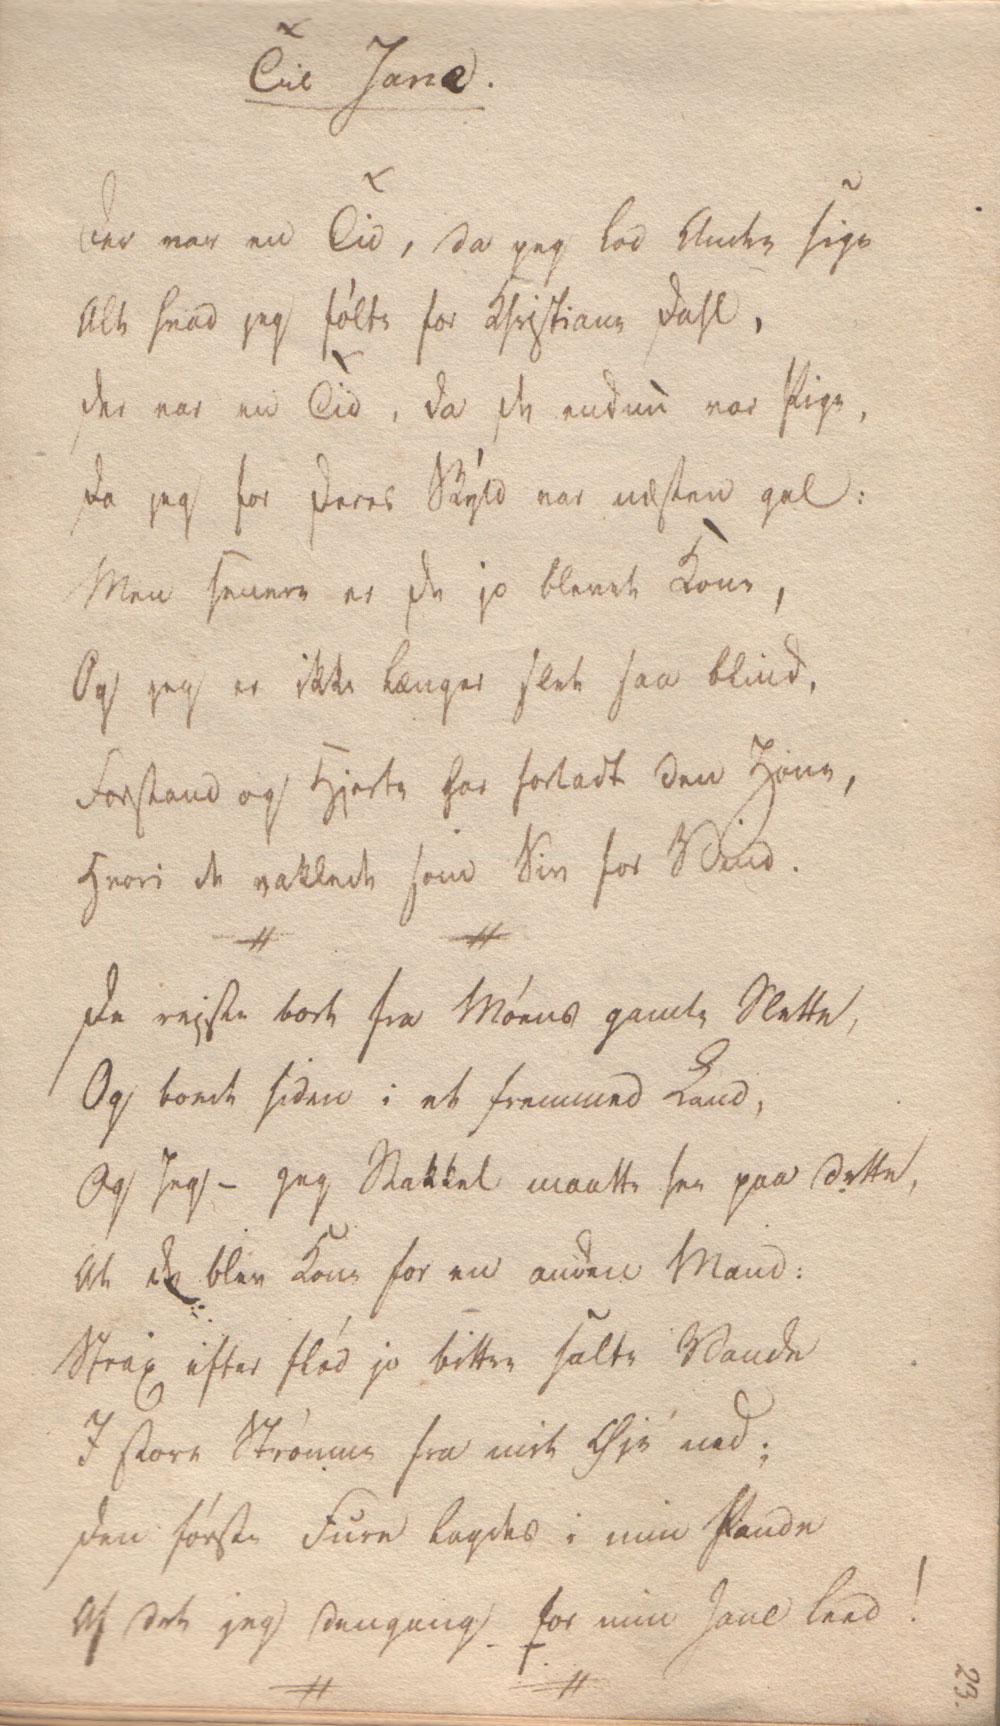 Til Jane.
Der var en Tid, da jeg lod Andre sige
Alt hvad jeg følte for Christiane Dahl,
Der var en Tid, da De endnu var Pige,
Da jeg for Deres Skyld var næsten gal:
Men senere er De jo blevet Kone,
Og jeg er ikke længer slet saa blind,
Forstand og Hjerte har forladt den Zone,
Hvori de vaklede som Siv for Vind.
De rejste bort fra Møens gamle Slette,
Og boede siden i et fremmed Land,
Og Jeg - jeg Stakkel maatte see paa dette,
At De blev Kone for en anden Mand:
Strax efter flød jo bittre salte Vande
I store Strømme fra mit Øje ned;
Den første Fure lagdes i min Pande
Af det jeg dengang for min Jane leed!
23.